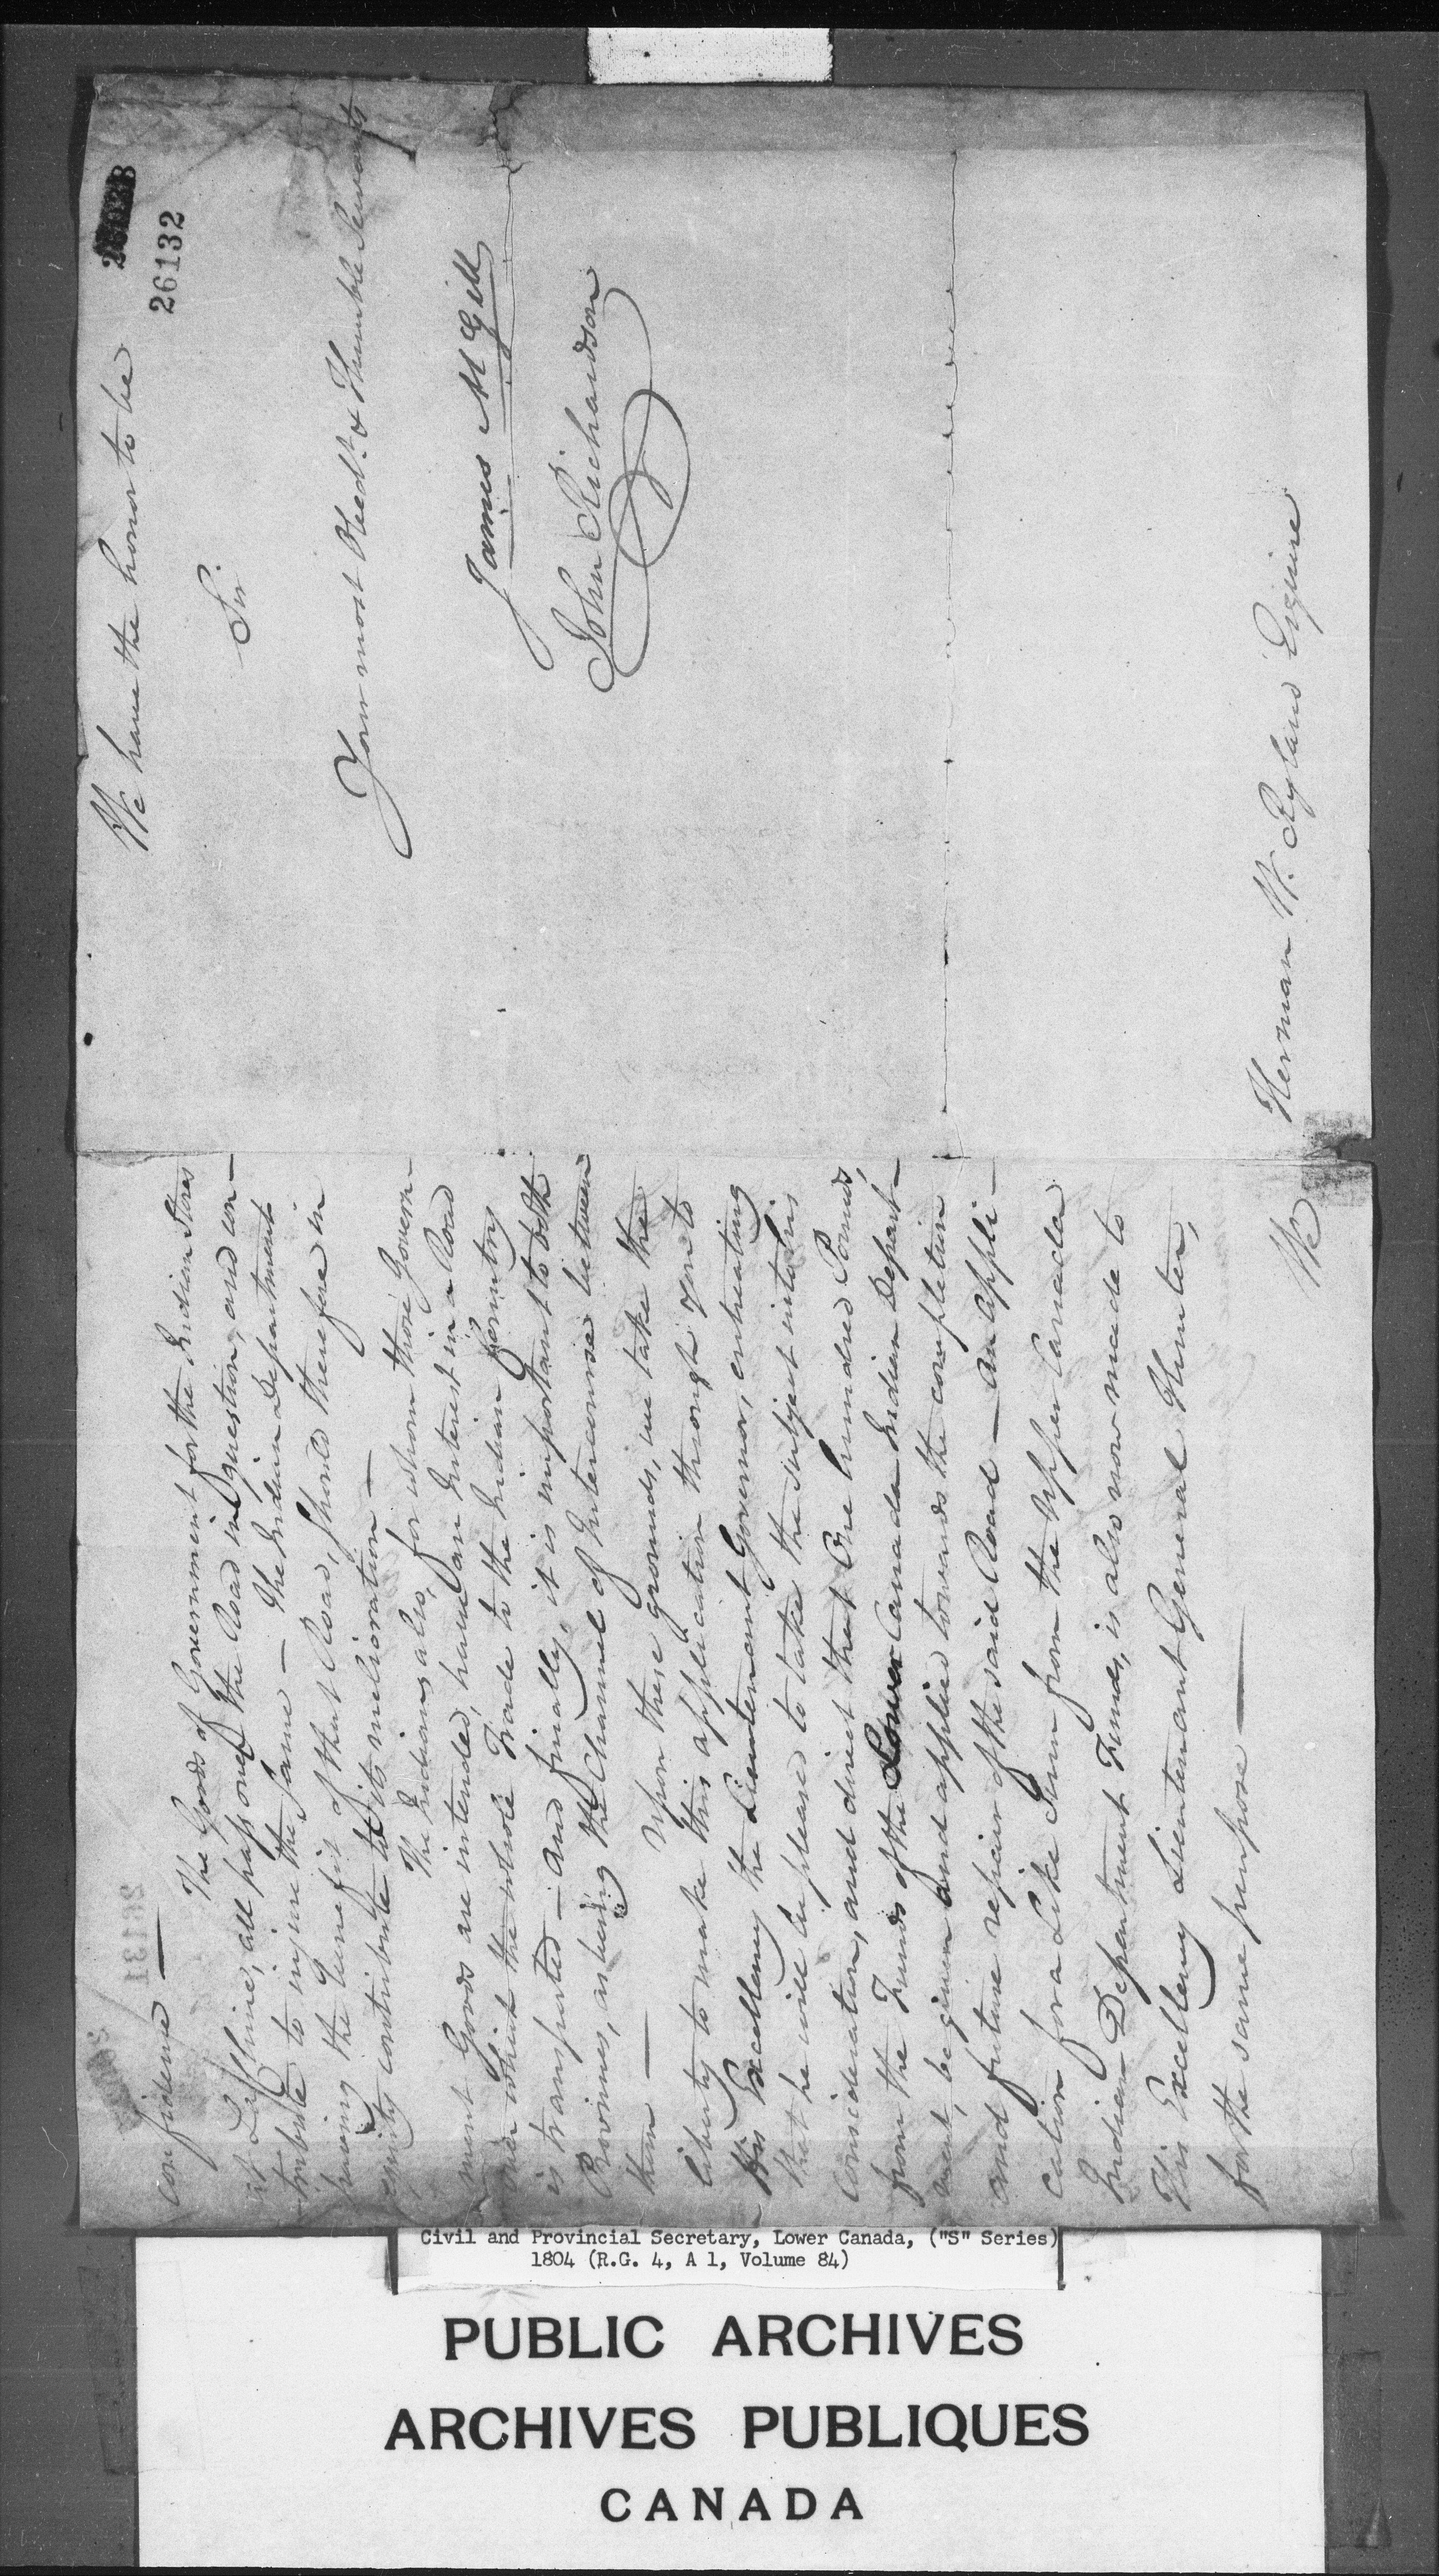 confidence —
The Goods of Government for the Indian Stores
at La Chine, all pass over the Road in question, and con-
tribute to injure the same — The Indian Department
having the benefit of that Road, should therefore in
equity contribute to its melioration —
The Indians also, for whom those Govern-
ment Goods are intended, have an Interest in a Road
over which the whole Trade to the Indian Country
is transported — and finally, it is important to both
Provinces, as being the Channel of Intercourse between
them —
Upon these grounds, we take the
liberty to make this application through you to
His Excellency the Lieutenant Governor, entreating
that he will be pleased to take the subject into his
consideration, and direct that One hundred Pounds,
from the Funds of the Lower Canada Indian Depart-
ment, be given and applied towards the completion
and future repair of the said Road — An appli-
cation for a Like Sum from the Upper Canada
Indian Department Funds, is also now made to
His Excellency Lieutenant General Hunter,
for the same purpose —
We
We have the honor to be
26132
Sir
Your most Obedt. & Humble Servants
James McGill
John Richardson
Herman W. Ryland Esquire
26131
Civil and Provincial Secretary, Lower Canada, ("S" Series)
1804 (R.G. 4, A 1, Volume 84)
PUBLIC ARCHIVES
ARCHIVES PUBLIQUES
CANADA